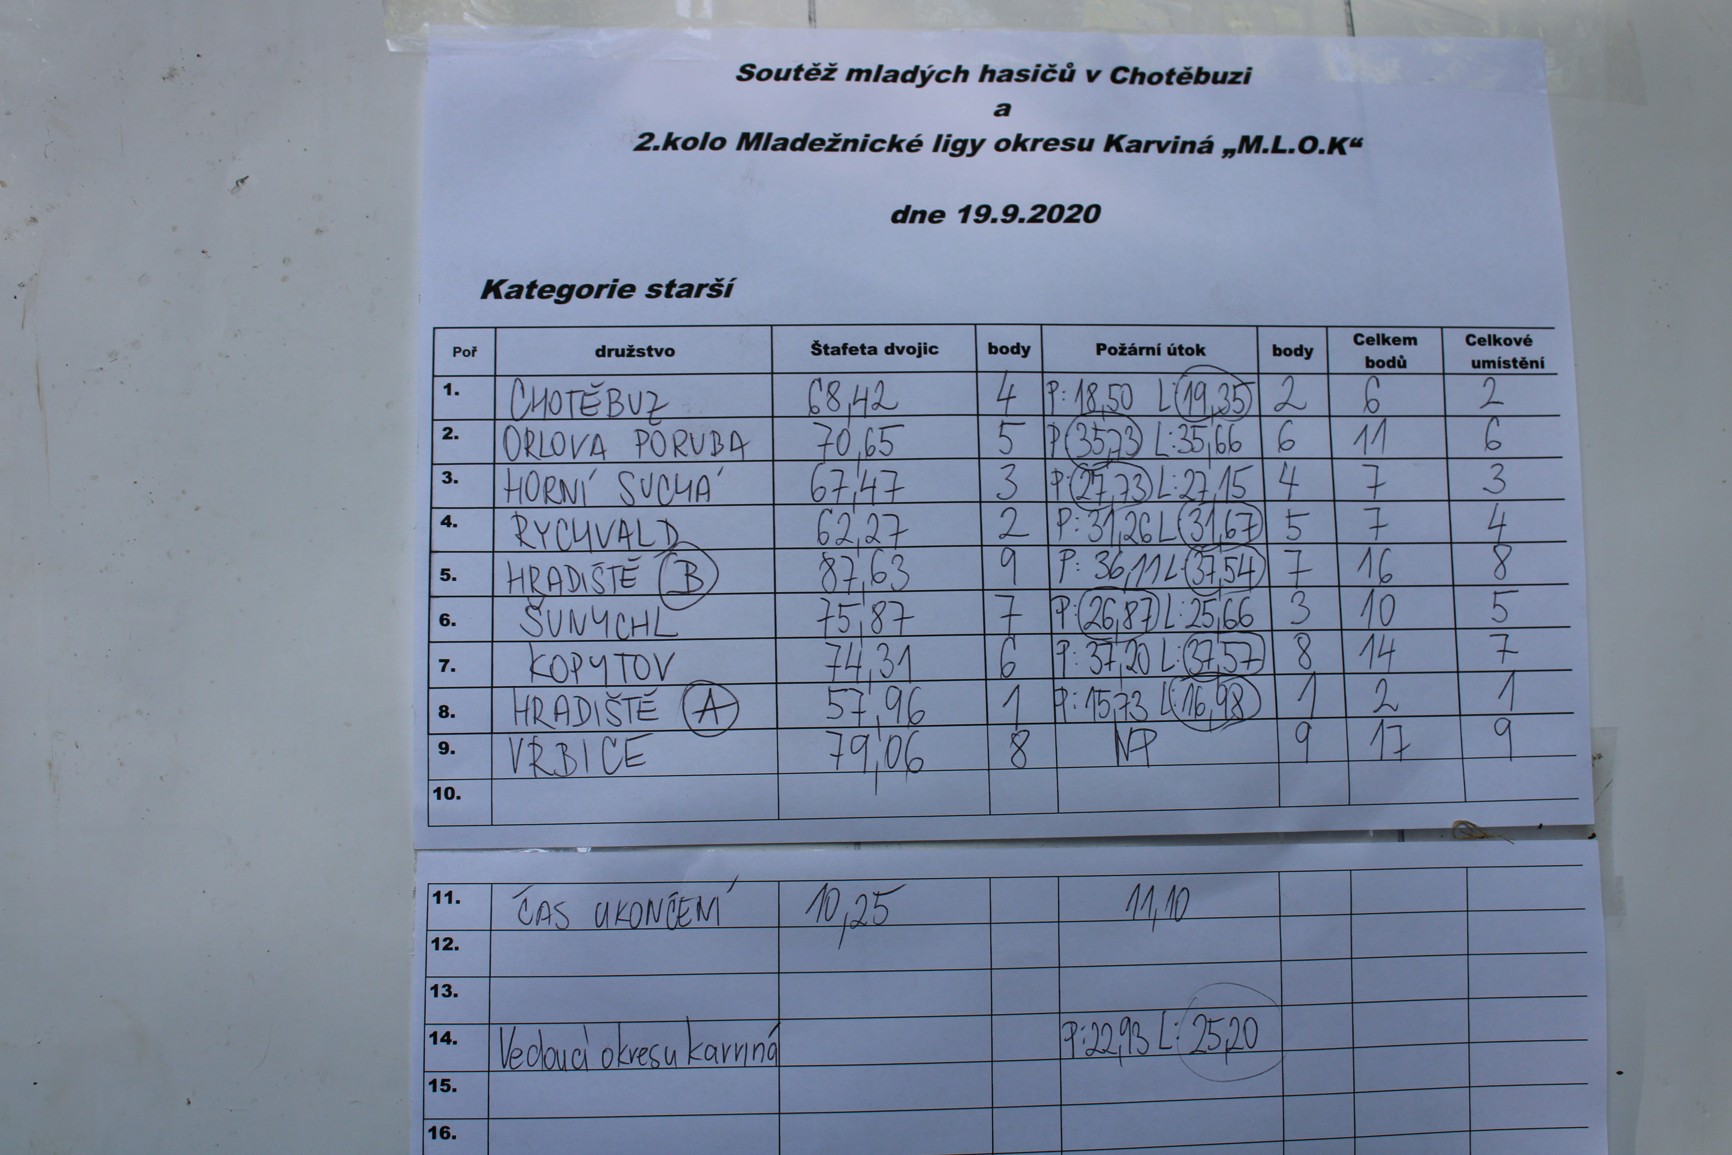 Soutěž mladých hasičů v Chotěbuzi
a
2.kolo Mladežnické ligy okresu Karviná „M.L.O.K“
dne 19.9.2020
Kategorie starší
Poř družstvo Štafeta dvojic body Požární útok body Celkem bodů Celkové umístění
1. CHOTĚBUZ 68,42 4 P: 18,50 L: 19,35 2 6 2
2. ORLOVA PORUBA 70,65 5 P 35,73 L: 35,66 6 11 6
3. HORNÍ SUCHÁ 67,47 3 P: 27,73 L: 27,15 4 7 3
4. RYCHVALD 62,27 2 P: 31,26 L 31,67 5 7 4
5. HRADIŠTĚ B 87,63 9 P: 36,11 L: 37,54 7 16 8
6. ŠUNYCHL 75,87 7 P: 26,87 L: 25,66 3 10 5
7. KOPYTOV 74,31 6 P: 37,20 L: 37,57 8 14 7
8. HRADIŠTĚ A 57,96 1 P: 15,73 L: 16,98 1 2 1
9. VRBICE 79,06 8 NP 9 17 9
10.
11. ČAS UKONČENÍ 10,25 11,10
12.
13.
14. Vedoucí okresu karviná P: 22,93 L: 25,20
15.
16.